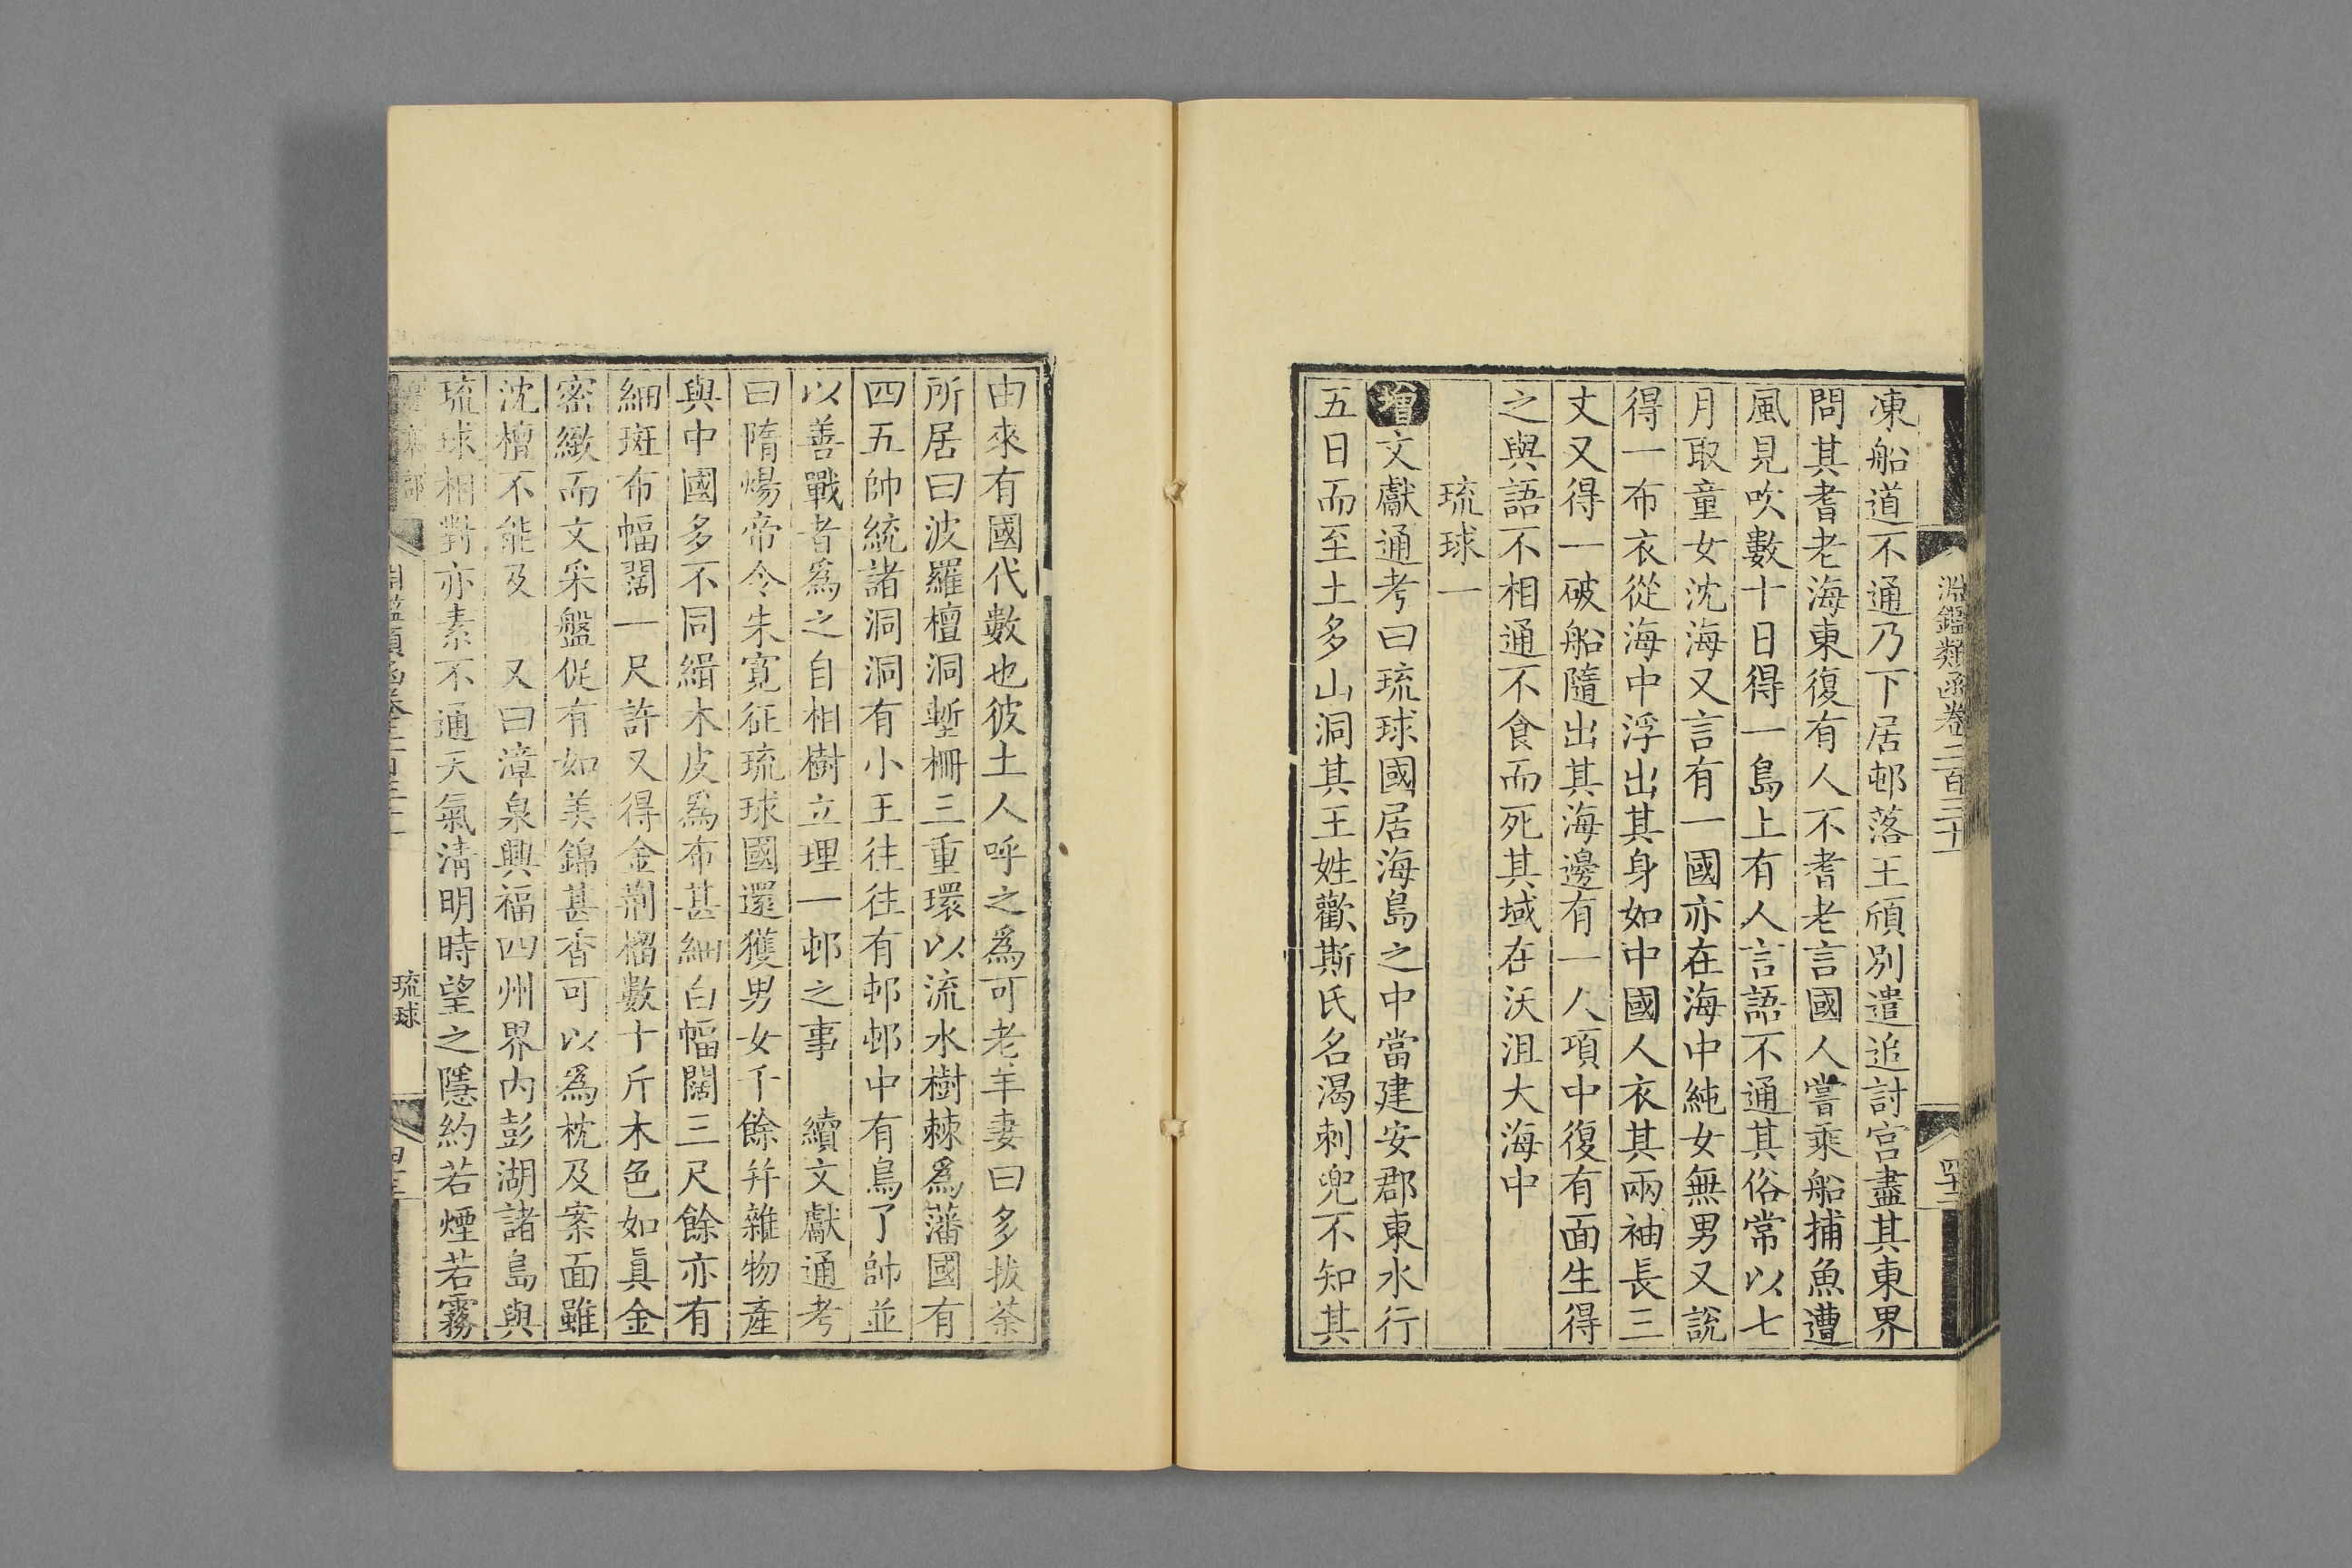 淵鑑類函卷二百三十
凍船道不通乃下居邨落王頎別遣追討宮盡其東界
問其耆老海東復有人不耆老言國人嘗乘船捕魚遭
風見吹數十日得一島上有人言語不通其俗常以七
月取童女沈海又言有一國亦在海中純女無男又說
得一布衣從海中浮出其身如中國人衣其兩袖長三
丈又得一破船隨出其海邊有一人項中復有面生得
之與語不相通不食而死其域在沃沮大海中
琉球一
增文獻通考曰琉球國居海島之中當建安郡東水行
五日而至土多山洞其王姓歡斯氏名渴刺兜不知其
由來有國代數也彼土人呼之爲可老羊妻曰多拔荼
所居曰波羅檀洞塹柵三重環以流水樹棘爲藩國有
四五帥統諸洞洞有小王往往有邨邨中有鳥了帥並
以善戰者爲之自相樹立理一邨之事　續文獻通考
曰隋煬帝令朱寬征琉球國還獲男女千餘幷雜物產
與中國多不同緝木皮爲布甚細白幅闊三尺餘亦有
細斑布幅闊一尺許又得金荆榴數十斤木色如眞金
密緻而文采盤促有如美錦甚香可以爲枕及案面雖
沈檀不能及　又曰漳泉興福四州界內彭湖諸島與
琉球相對亦素不通天氣淸明時望之隱約若煙若霧
琉球